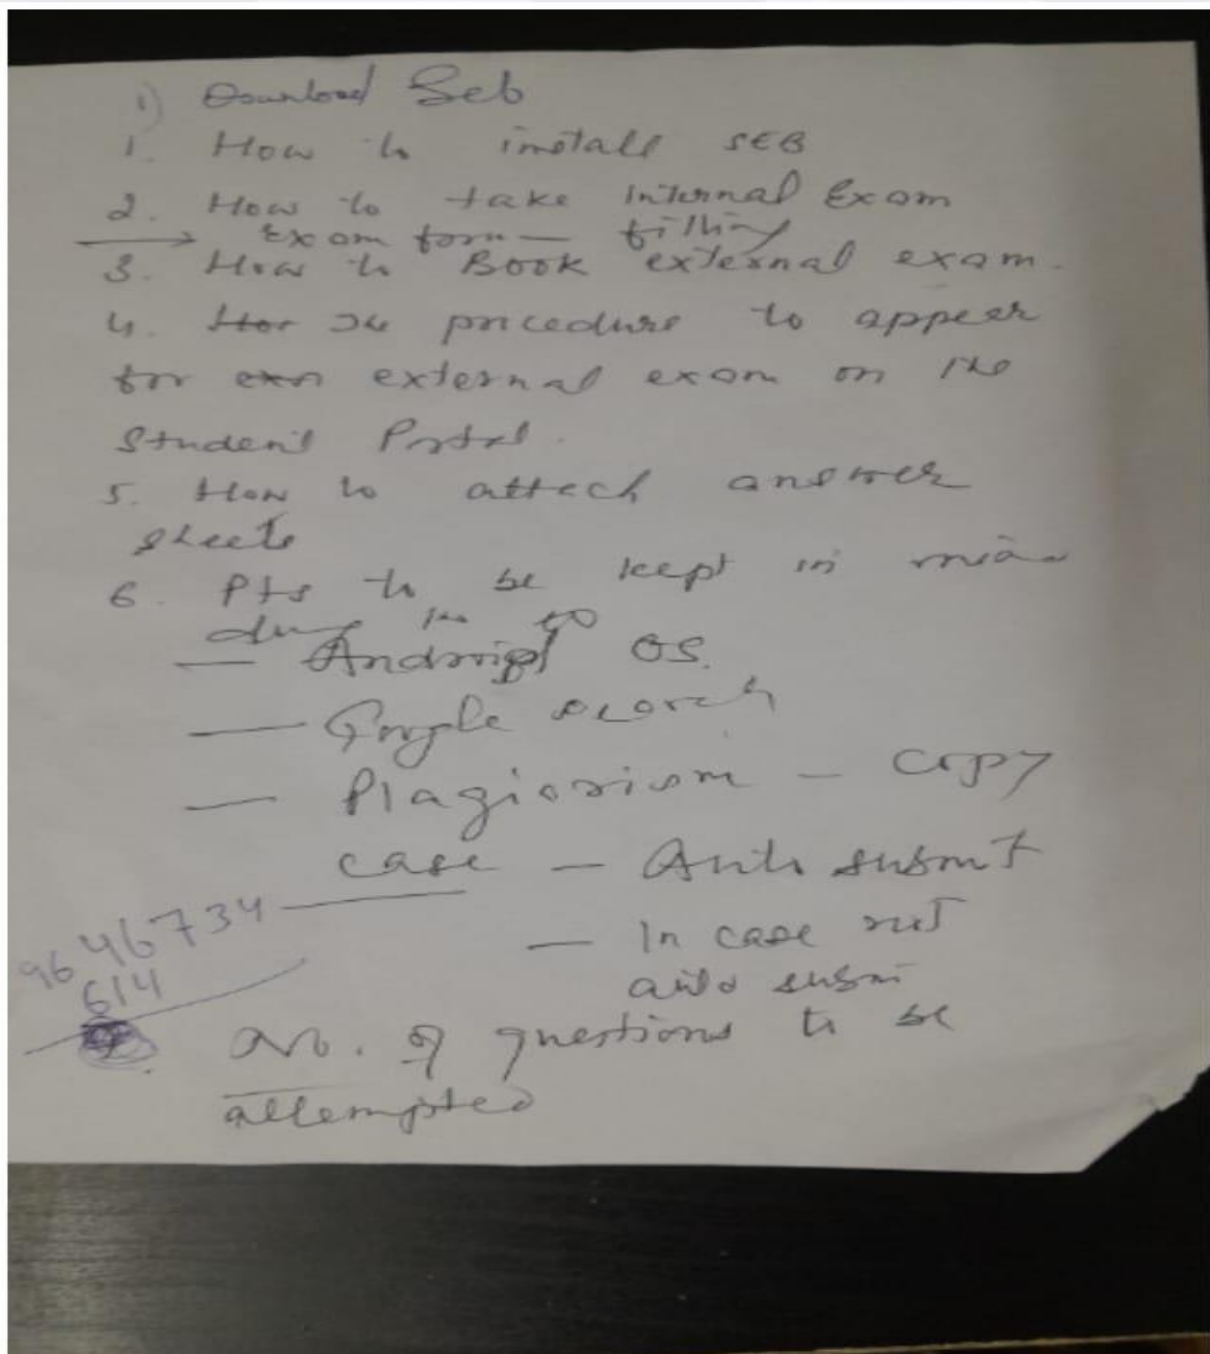 i) Download Seb
1. How to install SEB
2. How to take Internal Exam
Exam form — filling
3. How to Book external exam.
4. procedure to appear
for external exam on the
Student Portal.
5. How to attach answer
sheets
6. Pts to be kept in
the
— Android OS.
— Google search
— Plagiarism — copy
case — Auto submit
96 46734
614
— In case not
auto submi
no. of questions to be
attempted